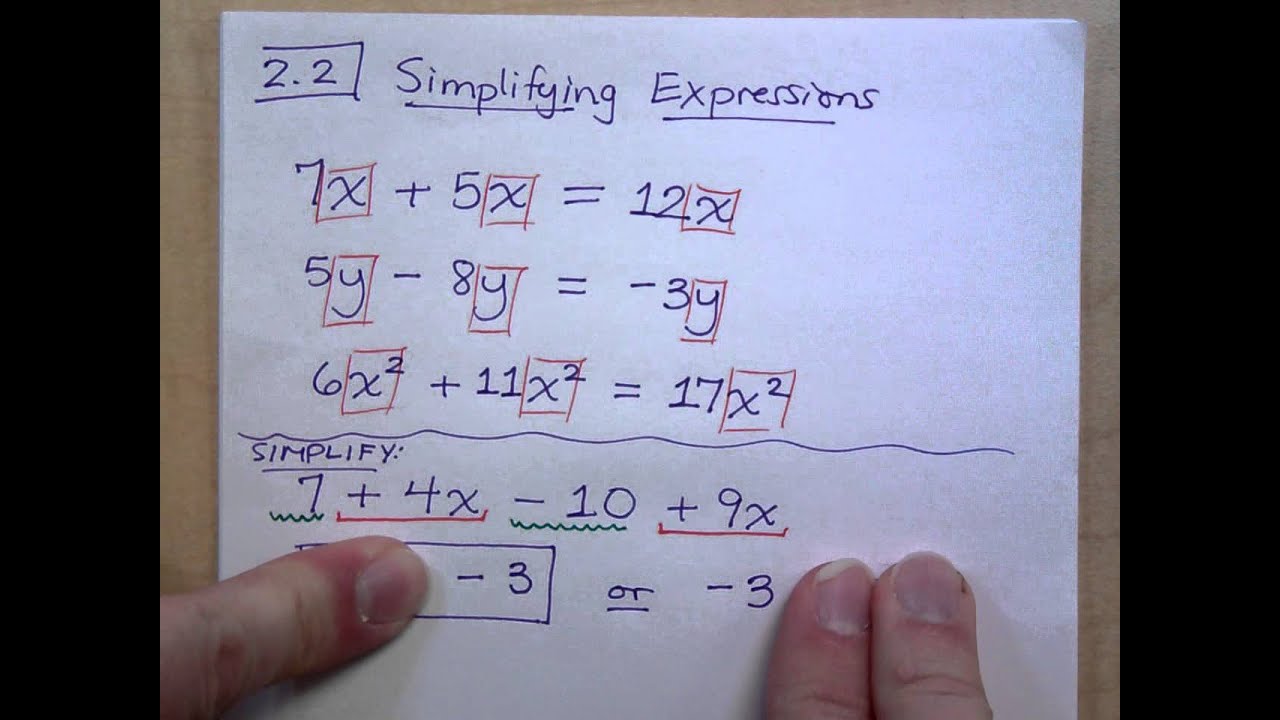 2.2 Simplifying Expressions
7x + 5x = 12x
5y - 8y = -3y
6x² + 11x² = 17x²
SIMPLIFY:
7 + 4x - 10 + 9x
- 3 or -3